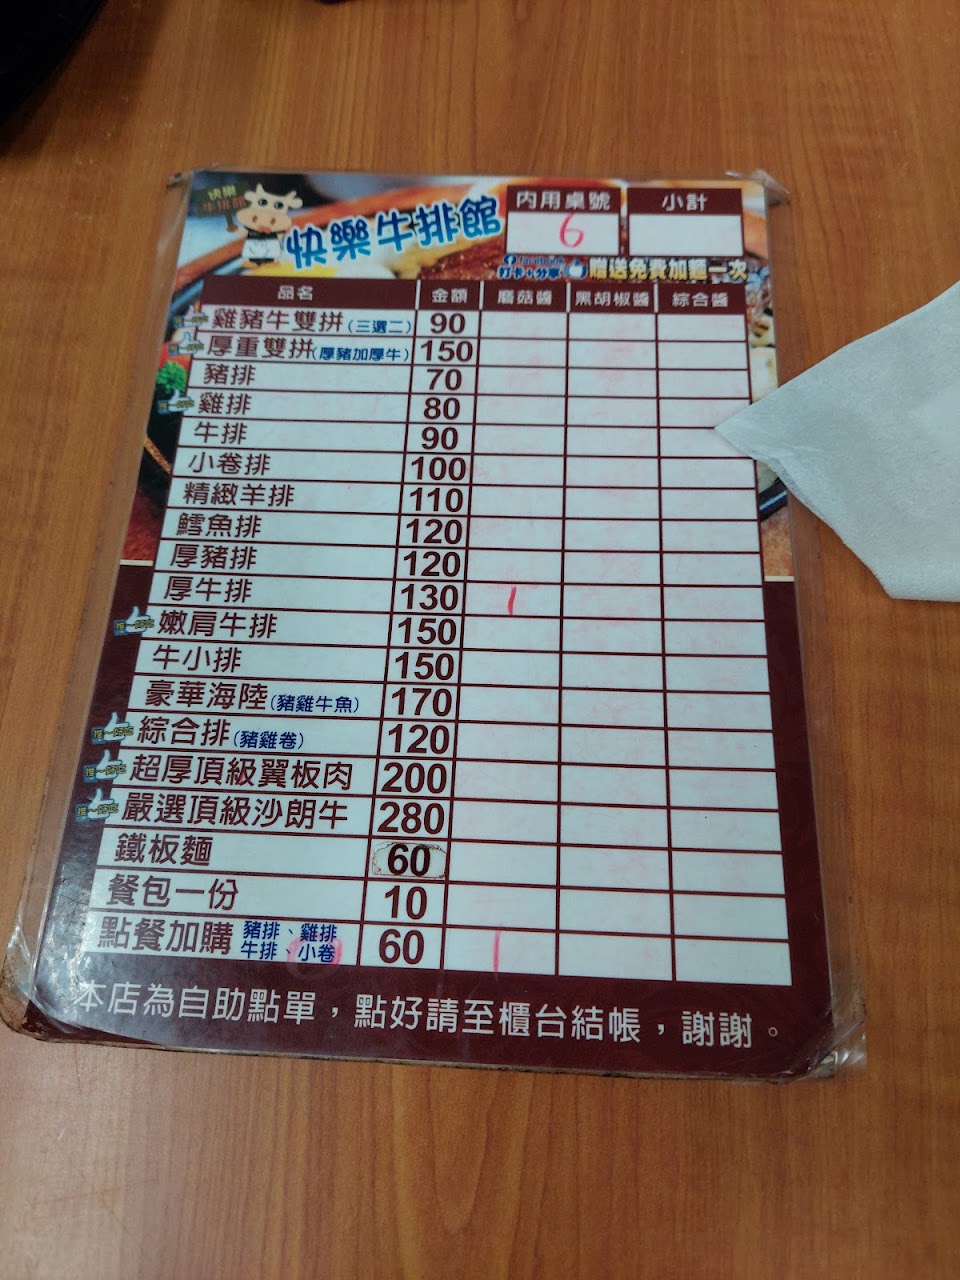 快樂
牛排館
快樂牛排館
內用桌號 小計
6
facebook
打卡+分享 贈送免費加麵一次
品名 金額 蘑菇醬 黑胡椒醬 綜合醬
雞豬牛雙拼(三選二) 90
厚重雙拼(厚豬加厚牛) 150
豬排 70
雞排 80
牛排 90
小卷排 100
精緻羊排 110
鱈魚排 120
厚豬排 120
厚牛排 130 1
嫩肩牛排 150
牛小排 150
豪華海陸(豬雞牛魚) 170
綜合排(豬雞卷) 120
超厚頂級翼板肉 200
嚴選頂級沙朗牛 280
鐵板麵 60
餐包一份 10
點餐加購 豬排、雞排 牛排、小卷 60 1
本店為自助點單，點好請至櫃台結帳，謝謝。